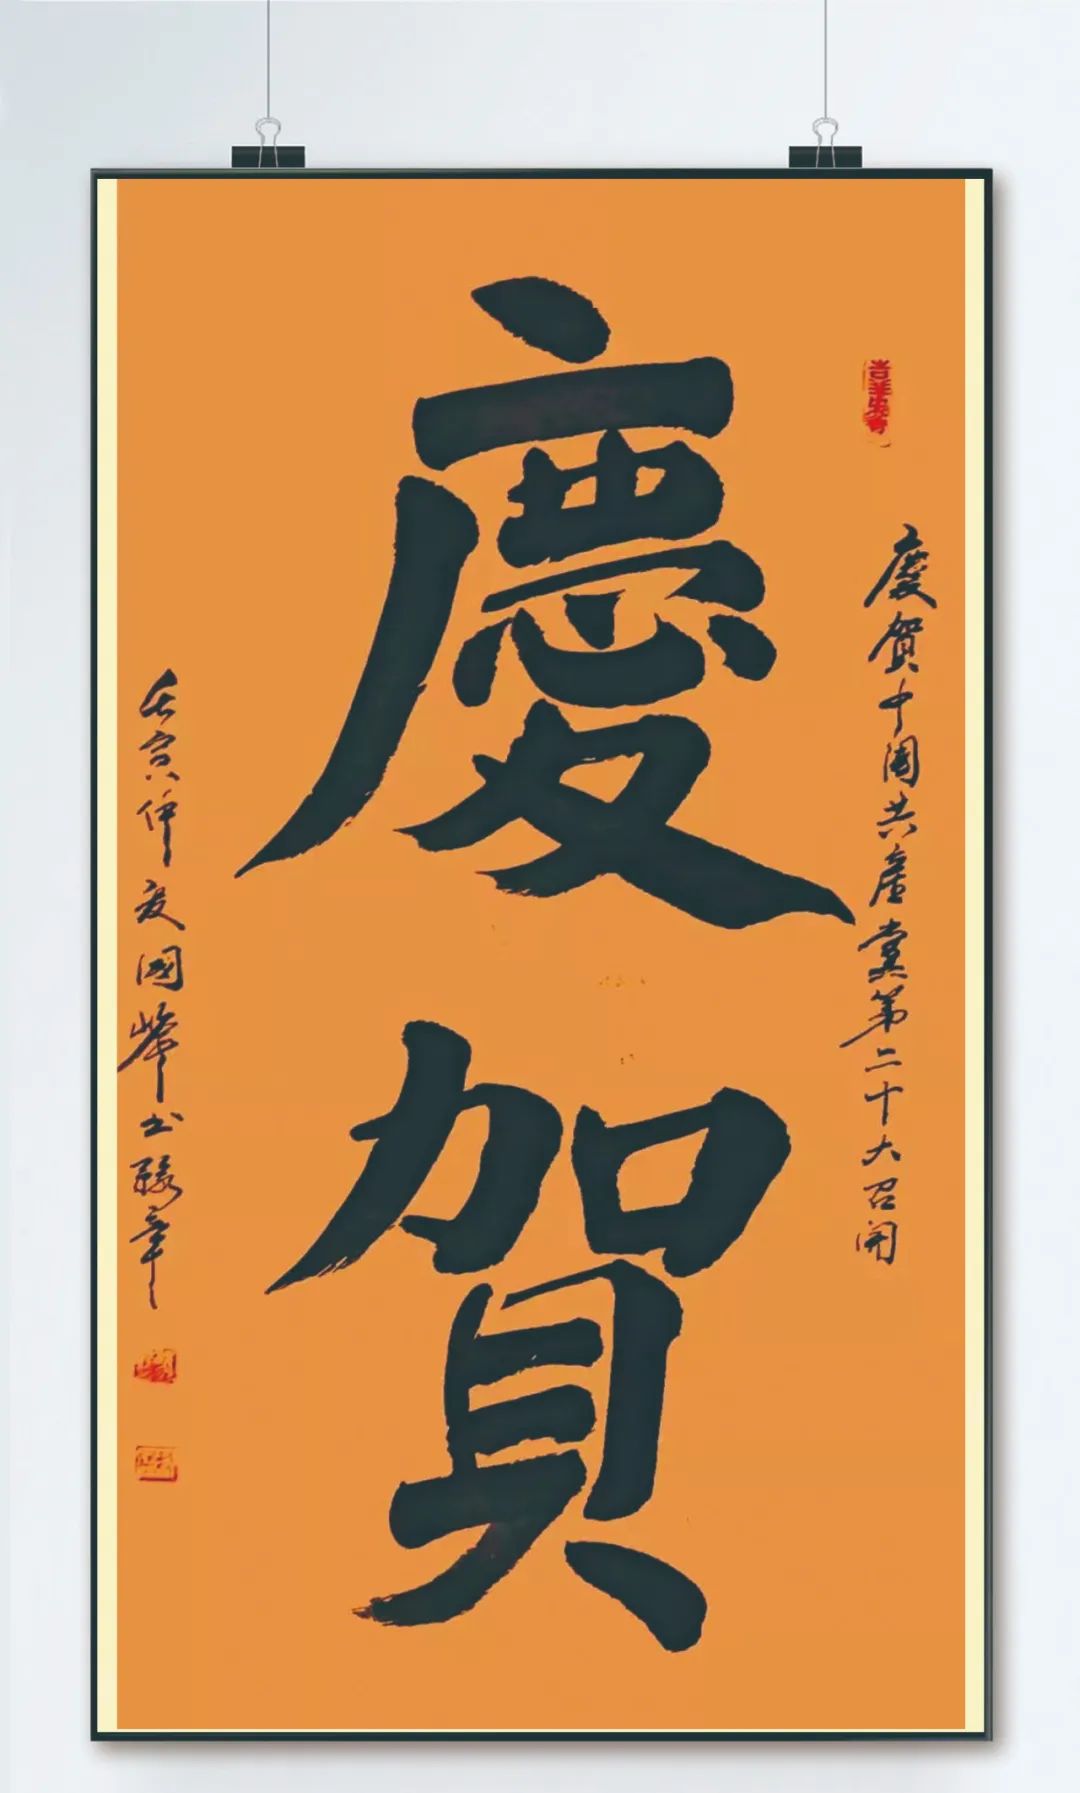 慶賀
慶賀中國共產黨第二十大召開
壬寅仲夏國華書